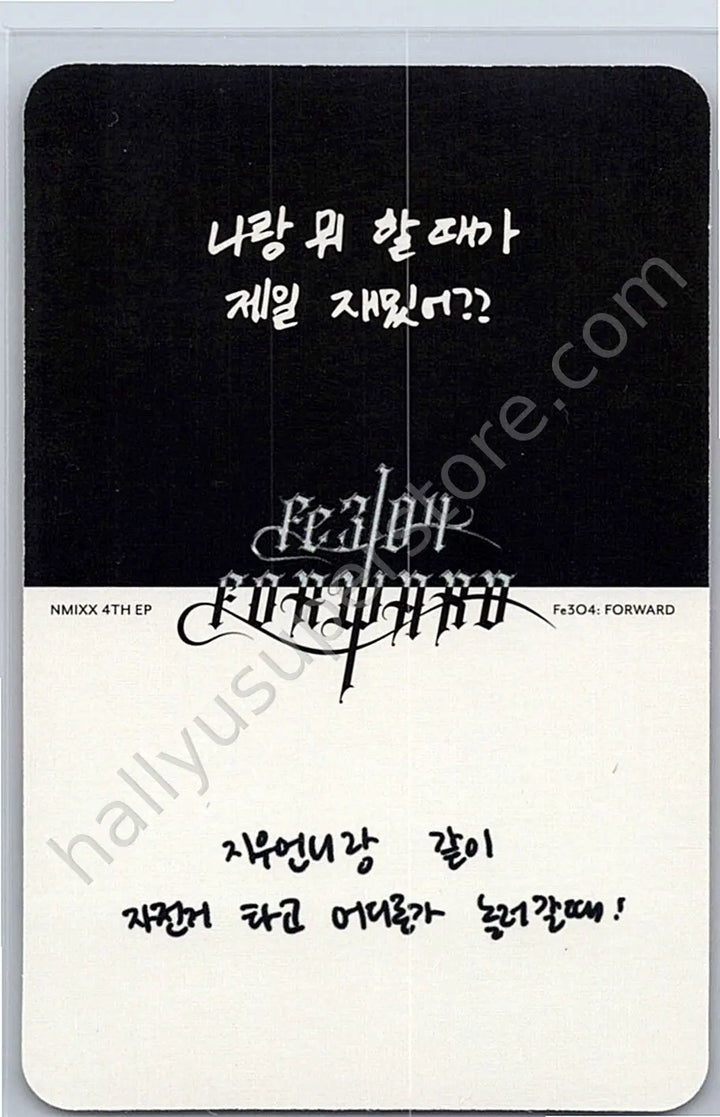 나랑 뭐 할 때가
제일 재밌어??
Fe3O4
FORWARD
NMIXX 4TH EP
Fe3O4: FORWARD
지우언니랑 같이
자전거 타고 어디론가 놀러갈때!
hallyusuperstore.com